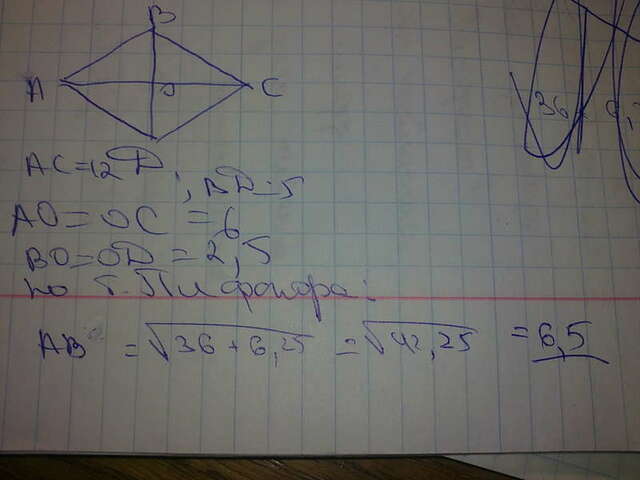 B
A O C
D
AC=12, BD=5
AO=OC=6
BO=OD=2,5
по т. Пифагора:
AB=√36+6,25=√42,25=6,5
36